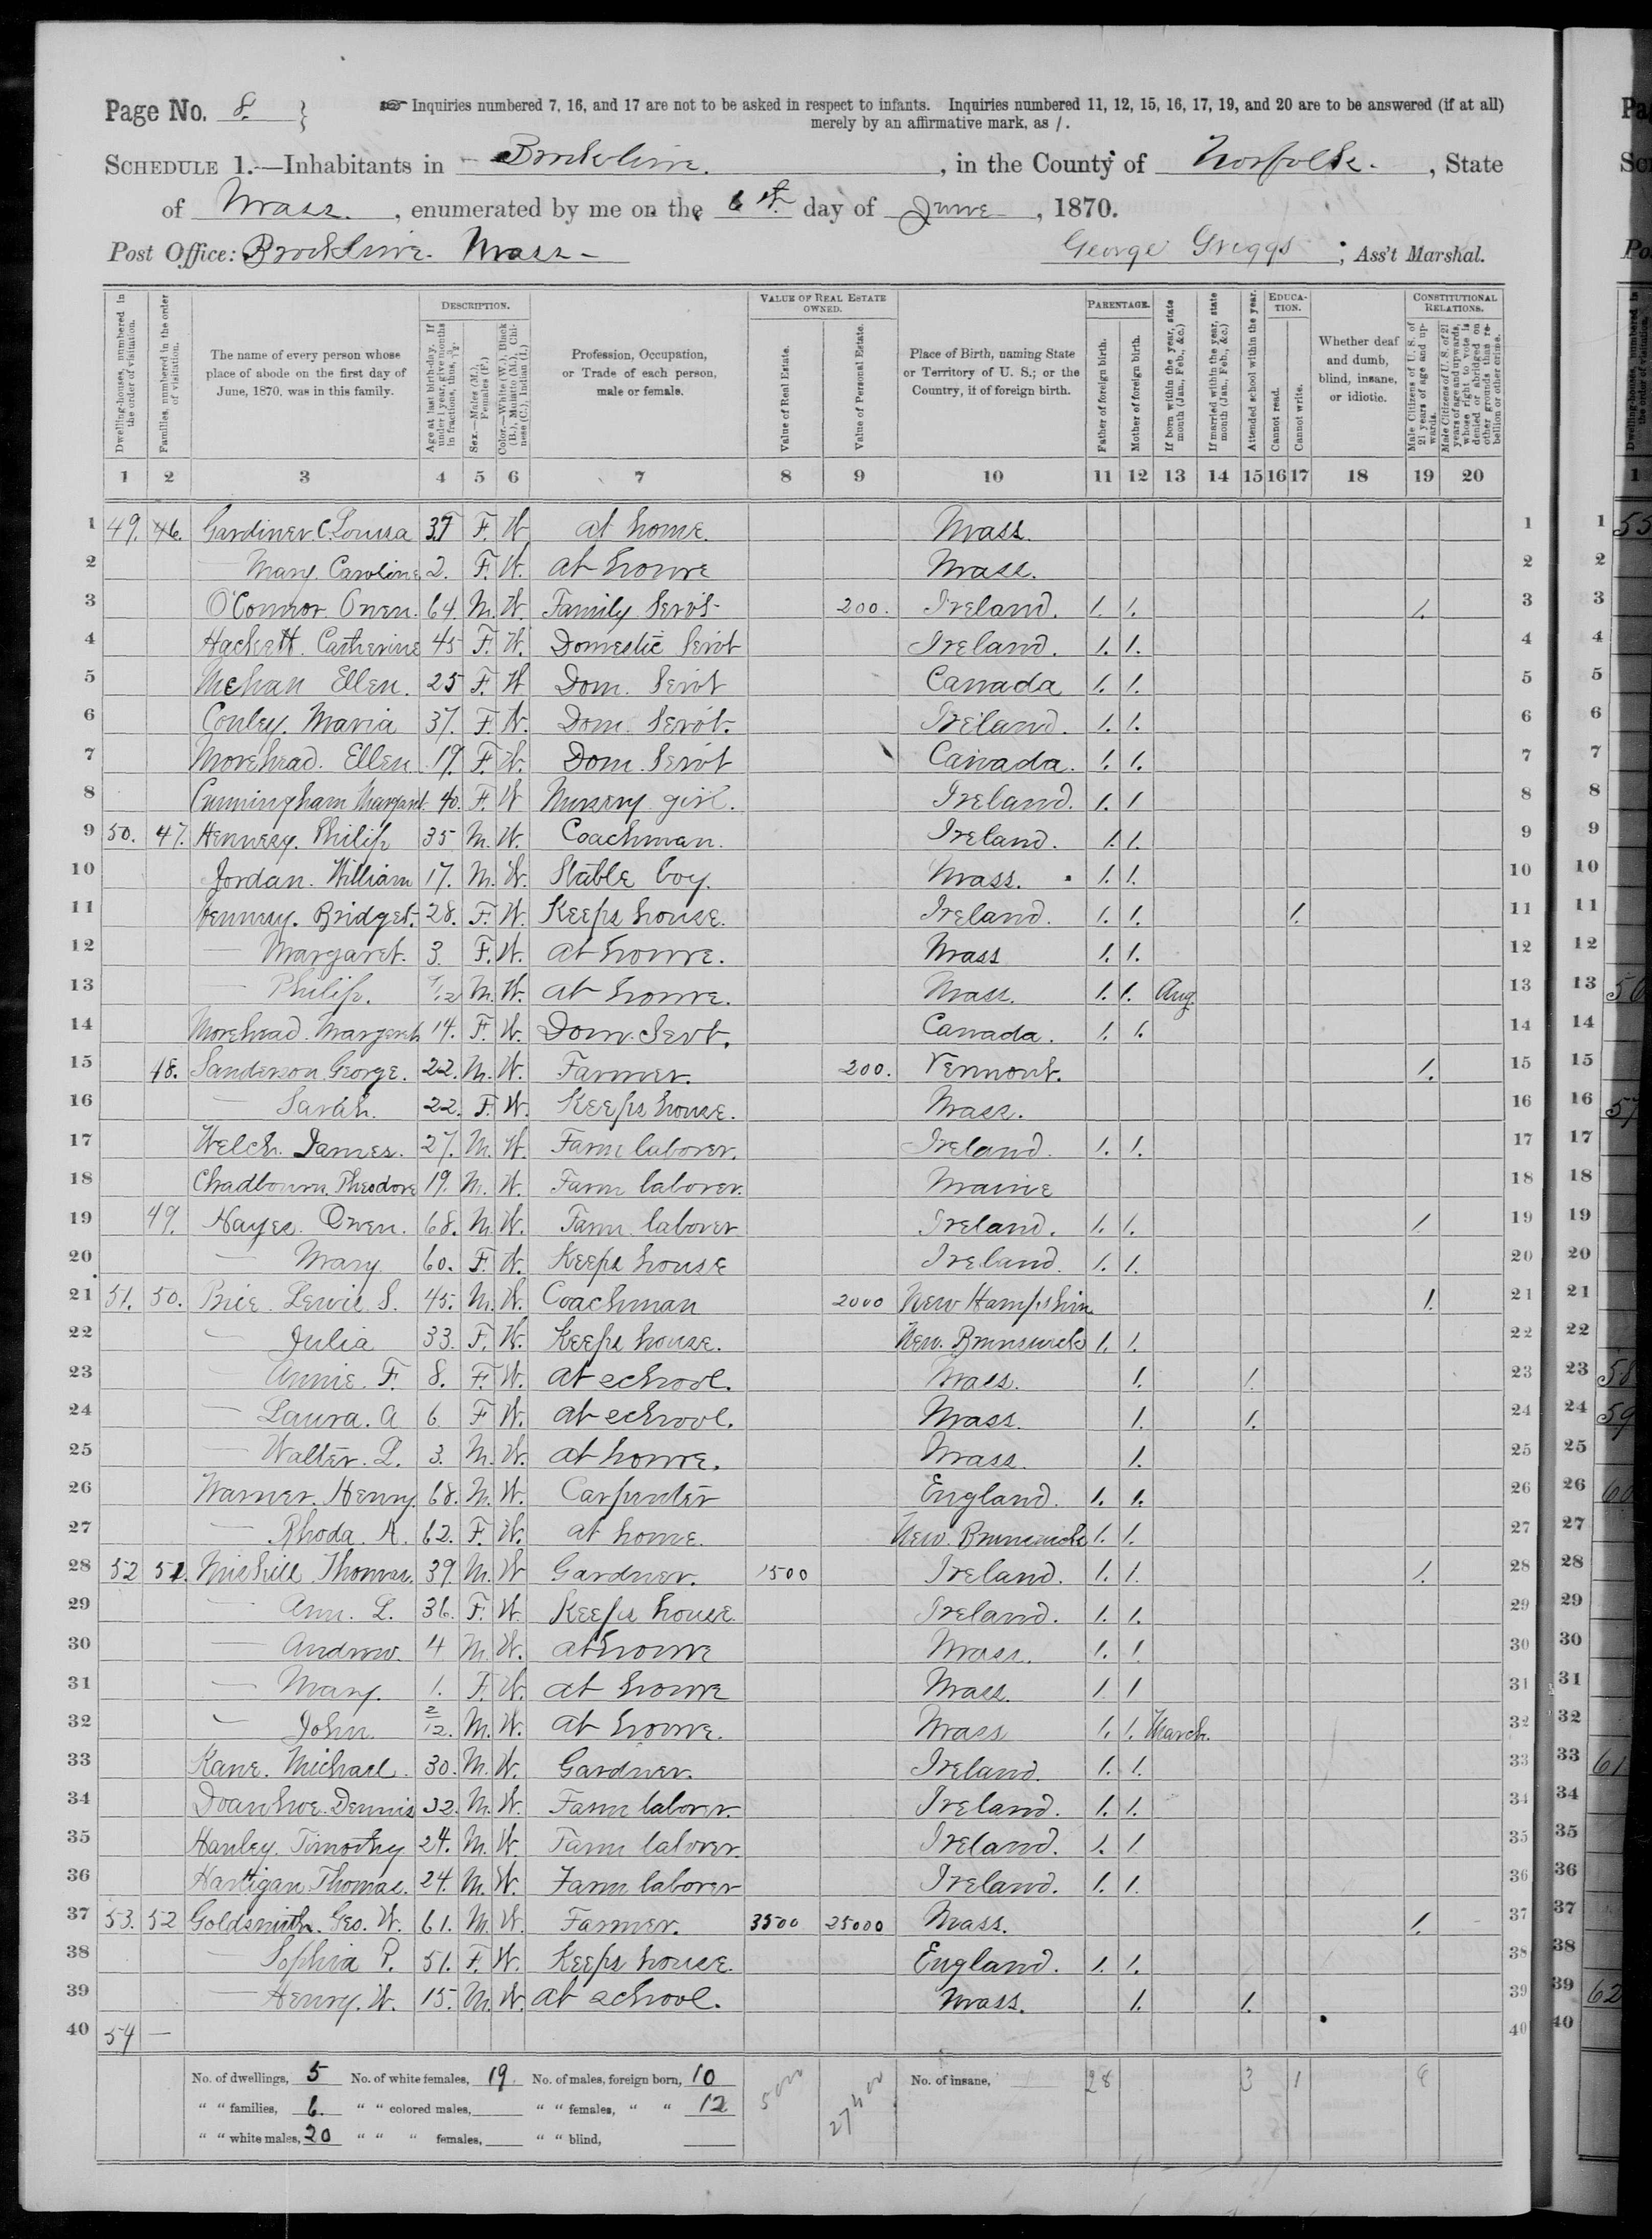 Page No. 8. }
☞ Inquiries numbered 7, 16, and 17 are not to be asked in respect to infants. Inquiries numbered 11, 12, 15, 16, 17, 19, and 20 are to be answered (if at all)
merely by an affirmative mark, as /.
SCHEDULE 1.—Inhabitants in Brookline. , in the County of Norfolk. , State
of Mass. , enumerated by me on the 6th. day of June , 1870.
Post Office: Brookline. Mass — George Griggs ; Ass't Marshal.
Dwelling-houses, numbered in the order of visitation.
Families, numbered in the order of visitation.
The name of every person whose place of abode on the first day of June, 1870, was in this family.
DESCRIPTION.
Age at last birth-day. If under 1 year, give months in fractions, thus, 3/12.
Sex.—Males (M.), Females (F.)
Color.—White (W.), Black (B.), Mulatto (M.), Chinese (C.), Indian (I.)
Profession, Occupation, or Trade of each person, male or female.
VALUE OF REAL ESTATE OWNED.
Value of Real Estate.
Value of Personal Estate.
Place of Birth, naming State or Territory of U. S.; or the Country, if of foreign birth.
PARENTAGE.
Father of foreign birth.
Mother of foreign birth.
If born within the year, state month (Jan., Feb., &c.)
If married within the year, state month (Jan., Feb., &c.)
Attended school within the year.
EDUCATION.
Cannot read.
Cannot write.
Whether deaf and dumb, blind, insane, or idiotic.
CONSTITUTIONAL RELATIONS.
Male Citizens of U. S. of 21 years of age and upwards.
Male Citizens of U. S. of 21 years of age and upwards, whose right to vote is denied or abridged on other grounds than rebellion or other crime.
1 2 3 4 5 6 7 8 9 10 11 12 13 14 15 16 17 18 19 20
1 49. 46. Gardiner C. Louisa 37 F. W at home. Mass. 1
2 — Mary. Caroline 2. F. W. at home Mass. 2
3 O'Connor Owen. 64 M. W Family Serv't 200. Ireland. 1. 1. 1. 3
4 Hackett. Catherine 45 F. W. Domestic Servt Ireland. 1. 1. 4
5 Mehan Ellen. 25 F. W Dom. Servt Canada 1. 1. 5
6 Conley. Maria 37. F. W. Dom Servt. Ireland. 1. 1. 6
7 Morehead. Ellen 19. F. W. Dom. Servt Canada. 1. 1. 7
8 Cunningham Margaret 40. F. W Nursery girl. Ireland. 1. 1 8
9 50. 47. Hennesy. Philip 35 M. W. Coachman. Ireland. 1. 1. 9
10 Jordan. William 17. M. W. Stable boy. Mass. 1. 1. 10
11 Hennesy. Bridget. 28. F. W. Keeps house. Ireland. 1. 1. 1. 11
12 — Margaret. 3. F. W. at home. Mass 1. 1. 12
13 — Philip. 9/12 M. W. at home. Mass. 1. 1. Aug. 13
14 Morehead. Margaret 14. F. W. Dom. Servt. Canada. 1. 1. 14
15 48. Sanderson George. 22. M. W. Farmer. 200. Vermont. 1. 15
16 — Sarah. 22. F. W. Keeps house. Mass. 16
17 Welch. James. 27. M. W. Farm laborer. Ireland. 1. 1. 17
18 Chadbourn. Theodore 19. M. W. Farm laborer. Maine 18
19 49. Hayes. Owen. 68. M. W. Farm laborer Ireland. 1. 1. 1. 19
20 — Mary 60. F. W. Keeps house Ireland. 1. 1. 20
21 51. 50. Price. Lewis S. 45. M. W. Coachman 2000 New Hampshire 1. 21
22 — Julia 33. F. W. Keeps house. New. Brunswick 1. 1. 22
23 — Annie. F. 8. F. W. at school. Mass. 1. 1. 23
24 — Laura. A 6 F W. at school. Mass. 1. 1. 24
25 — Walter. L. 3. M. W. at home. Mass. 1. 25
26 Warner. Henry 68. M. W. Carpenter England. 1. 1. 26
27 — Rhoda. A. 62. F. W. at home. New. Brunswick 1. 1. 27
28 52 51. Thomas. 39. M. W Gardner. 1500 Ireland. 1. 1. 1. 28
29 — Ann. L. 36. F. W. Keeps house. Ireland. 1. 1. 29
30 — Andrew. 4 M. W. at home Mass. 1. 1. 30
31 — Mary. 1. F. W. at home Mass. 1 1 31
32 — John. 2/12. M. W. at home. Mass 1. 1. March. 32
33 Kane. Michael. 30. M. W. Gardner. Ireland. 1. 1. 33
34 Doanhoe. Dennis 32. M. W. Farm laborer. Ireland. 1. 1. 34
35 Hanley. Timothy 24. M. W. Farm laborer. Ireland. 1. 1. 35
36 Hartigan Thomas. 24. M. W. Farm laborer Ireland. 1. 1. 36
37 53. 52 Goldsmith. Geo. W. 61. M. W. Farmer. 3500 25000 Mass. 1. 37
38 — Sophia P. 51. F. W. Keeps house. England. 1. 1. 38
39 — Henry. W. 15. M. W. at school. Mass. 1. 1. 39
40 54 — 40
No. of dwellings, 5 No. of white females, 19 No. of males, foreign born, 10 5000 No. of insane, 28 3 1 6
" " families, 6. " " colored males, " " females, " " 12
" " white males, 20 " " " females, " " blind,